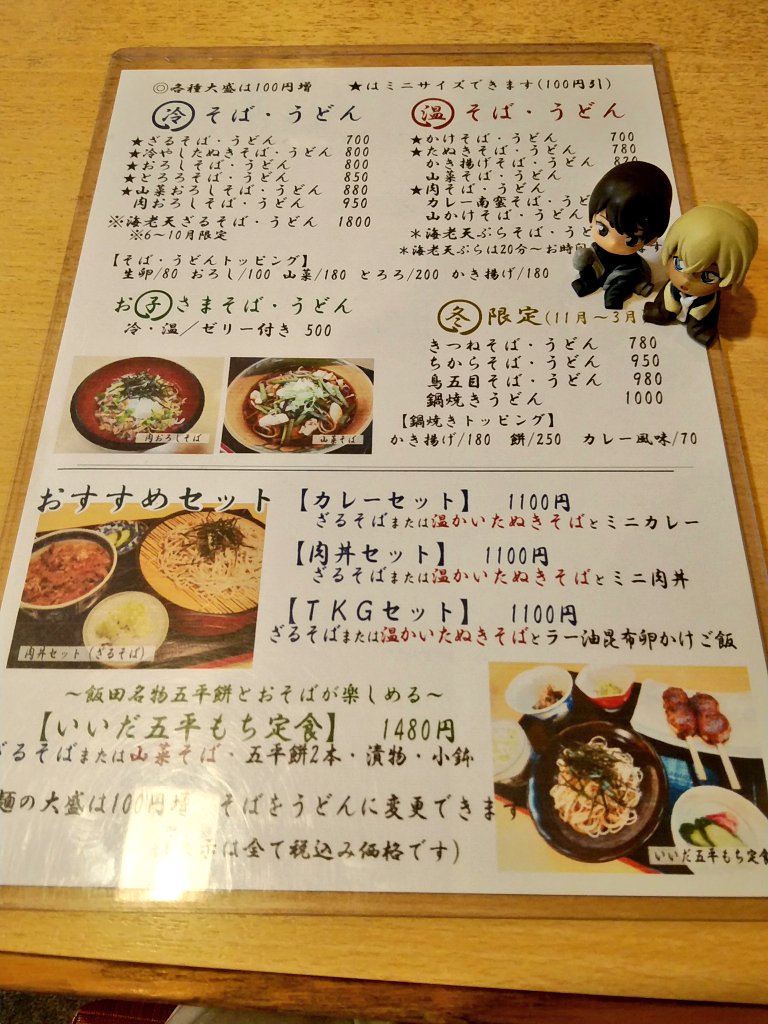 ◎各種大盛は100円増　★はミニサイズできます(100円引)
冷 そば・うどん
★ざるそば・うどん 700
★冷やしたぬきそば・うどん 800
★おろしそば・うどん 800
★とろろそば・うどん 850
★山菜おろしそば・うどん 880
肉おろしそば・うどん 950
※海老天ざるそば・うどん 1800
※6～10月限定
【そば・うどんトッピング】
生卵/80 おろし/100 山菜/180 とろろ/200 かき揚げ/180
お子さまそば・うどん
冷・温／ゼリー付き 500
温 そば・うどん
★かけそば・うどん 700
★たぬきそば・うどん 780
かき揚げそば・うどん 820
山菜そば・うどん
★肉そば・うどん
カレー南蛮そば・うど
山かけそば・うどん
＊海老天ぷらそば・うど
＊海老天ぷらは20分～お時間 ます
冬 限定(11月～3月
きつねそば・うどん 780
ちからそば・うどん 950
鳥五目そば・うどん 980
鍋焼きうどん 1000
【鍋焼きトッピング】
かき揚げ/180 餅/250 カレー風味/70
肉おろしそば
山菜そば
おすすめセット
【カレーセット】 1100円
ざるそばまたは温かいたぬきそばとミニカレー
【肉丼セット】 1100円
ざるそばまたは温かいたぬきそばとミニ肉丼
【TKGセット】 1100円
ざるそばまたは温かいたぬきそばとラー油昆布卵かけご飯
肉丼セット（ざるそば）
～飯田名物五平餅とおそばが楽しめる～
【いいだ五平もち定食】 1480円
ざるそばまたは山菜そば・五平餅2本・漬物・小鉢
麺の大盛は100円増 そばをうどんに変更できます
は全て税込み価格です)
いいだ五平もち定食